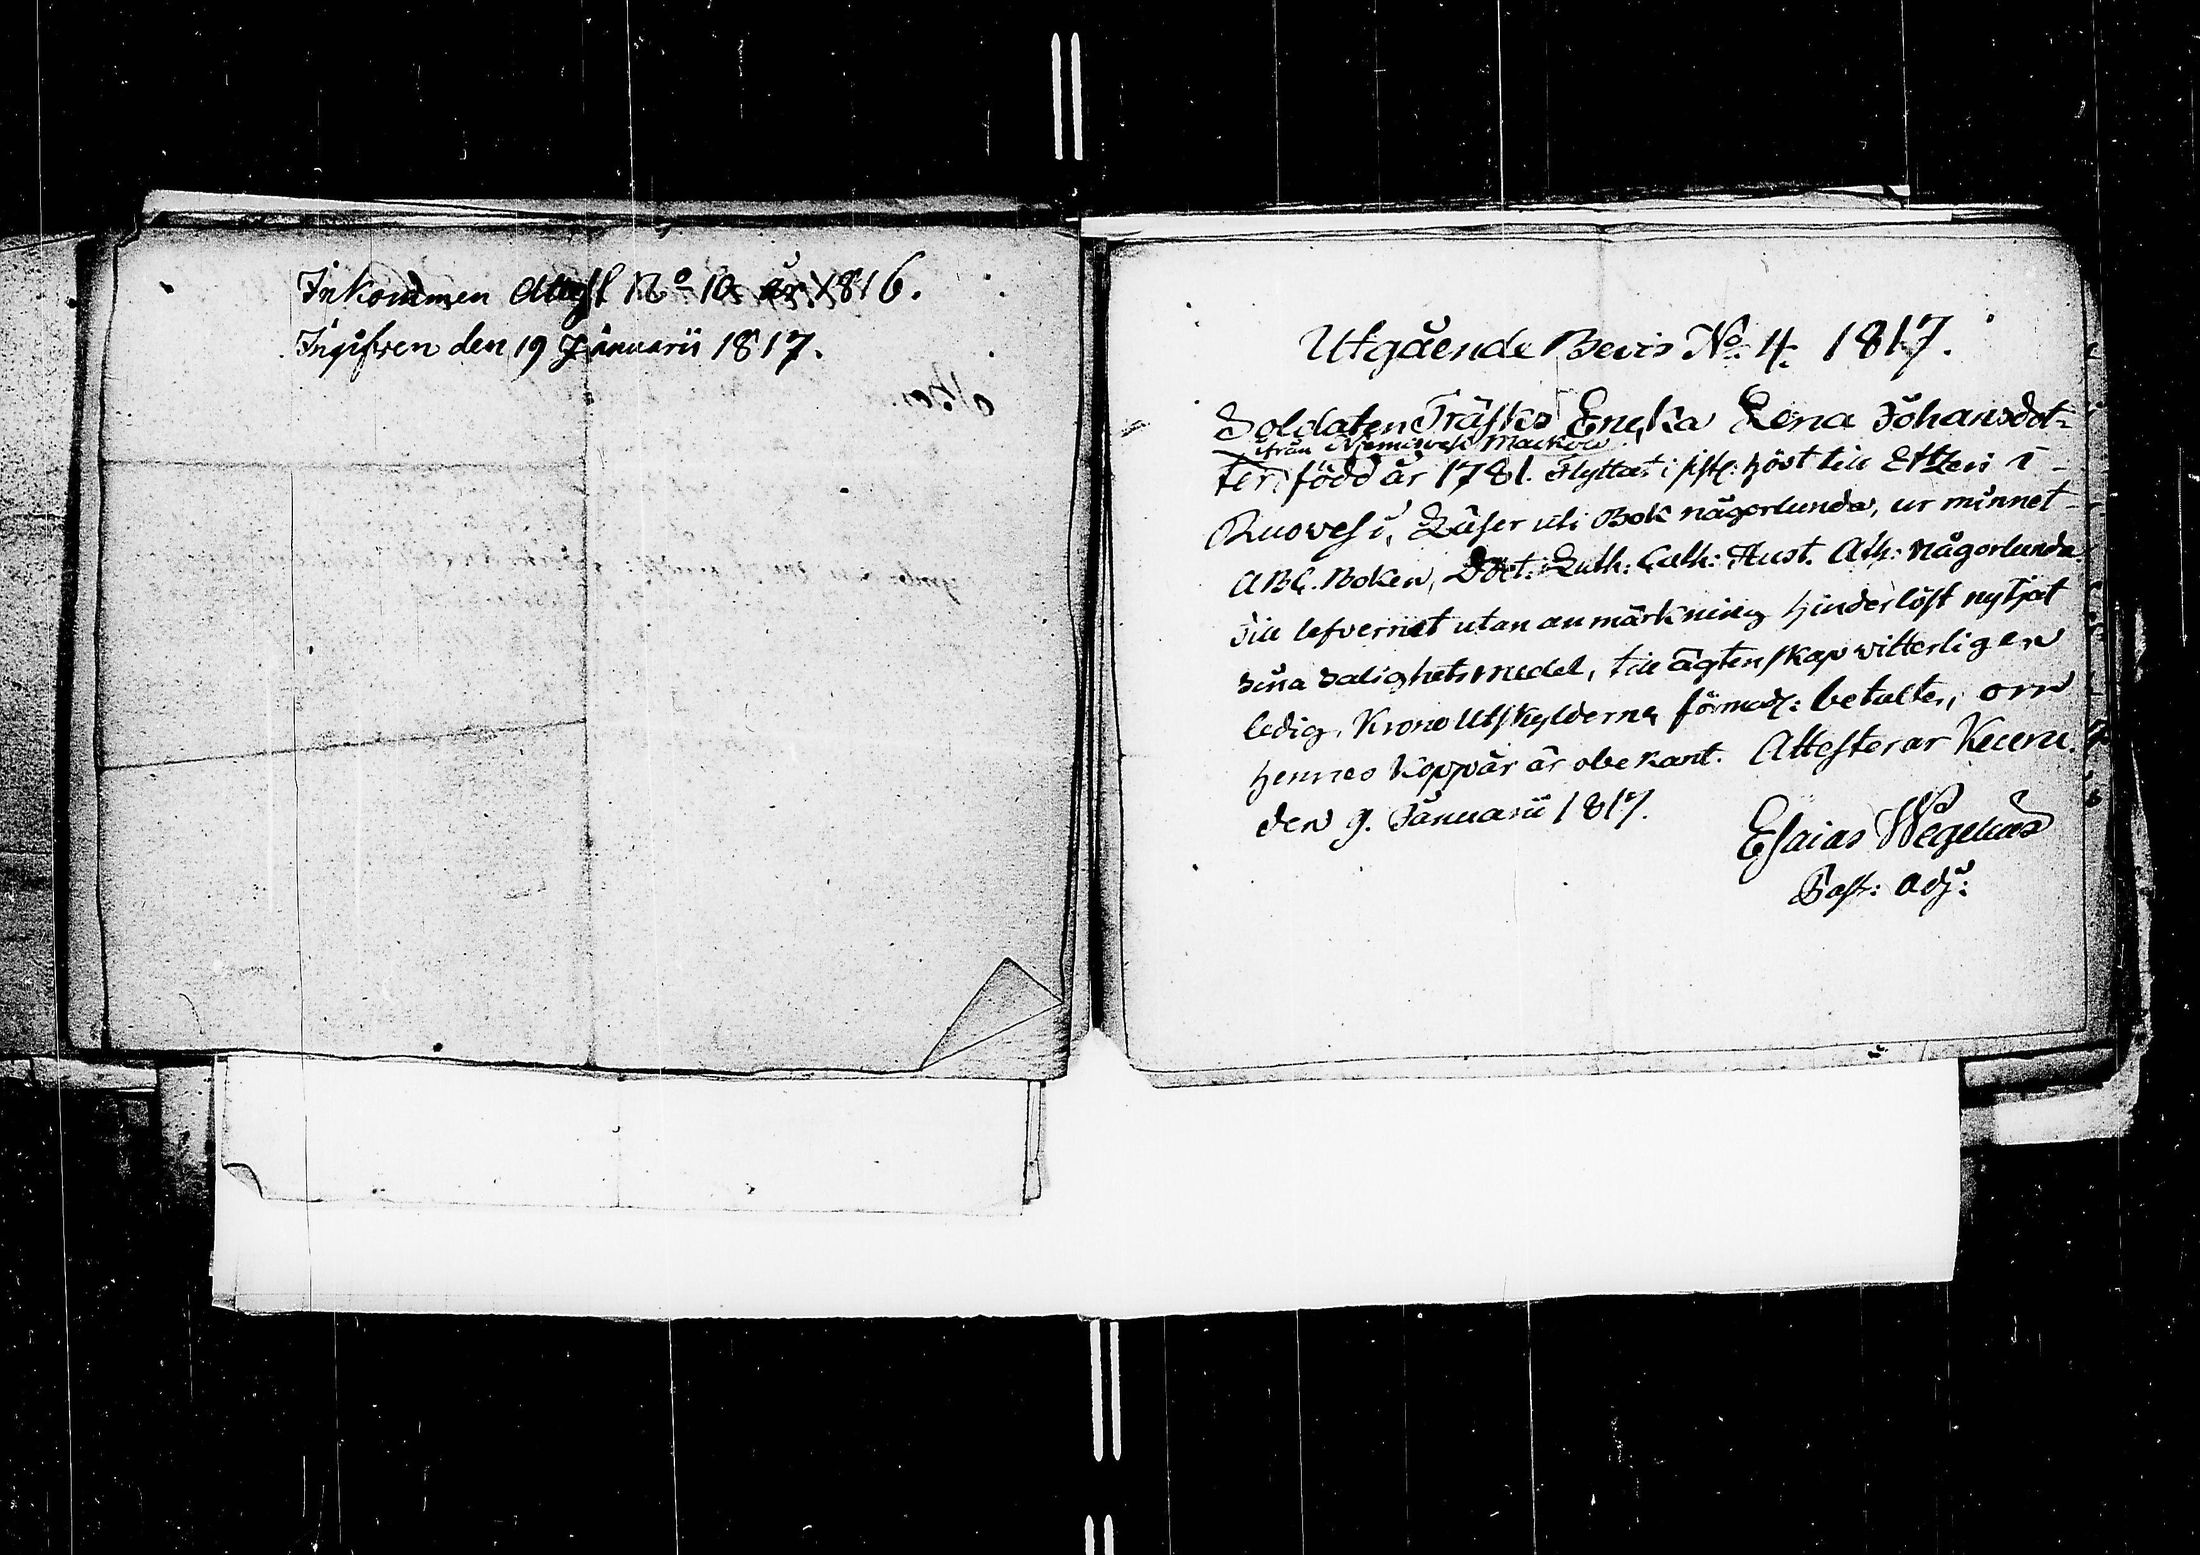 Inkommen Attest No 10 år 1816.
Ingifven den 19 Januarii 1817.
Utgående Bevis No. 4. 1817.
Soldaten Träsks Enka Lena Johansdot-
ifrån Niemiwesi Mackois
ter, född år 1781. Flyttat i sistl: höst till Etzeri i
Ruovesi, Läser uti Bok någorlunda, ur minnet
ABC. Boken, Luth: Cath: Hust. Ath: någorlunda.
Till lefvernet utan anmärkning hinderlöst nytjat
sina Salighetsmedel, till ägtenskap vitterligen
ledig. Krono Utskylderna förmodl: betalter, om
hennes Koppår är obekant. Attesterar Keuru
den 9. Januarii 1817.
Esaias Wegelius
Past: adj: